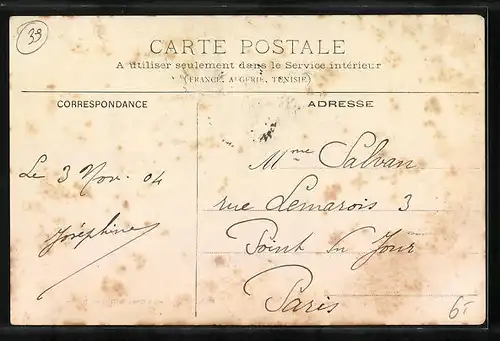 39
CARTE POSTALE
A utiliser seulement dans le Service intérieur
(FRANCE, ALGÉRIE, TUNISIE)
CORRESPONDANCE
ADRESSE
Le 3 Nov. 04
Joséphine
Mme Salvan
rue Lemarois 3
Point du Jour
Paris
6-